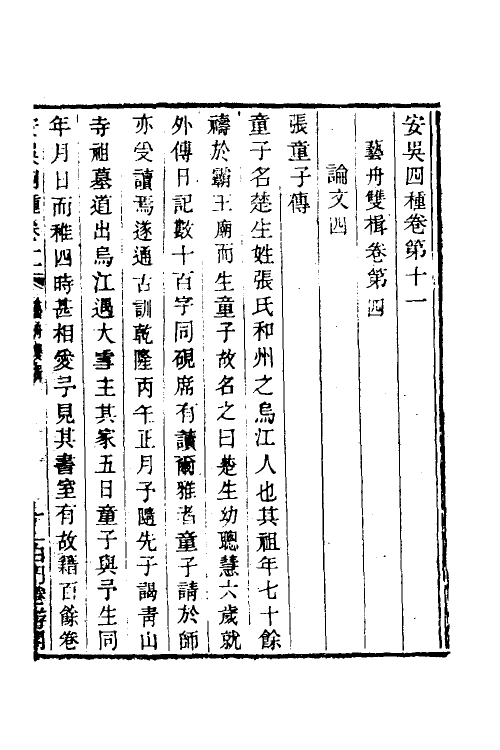 安吳四種卷第十一
藝舟雙楫卷第四
論文四
張童子傳
童子名楚生姓張氏和州之烏江人也其祖年七十餘
禱於霸王廟而生童子故名之曰楚生幼聰慧六歲就
外傳日記數十百字同硯席有讀爾雅者童子請於師
亦受讀焉遂通古訓乾隆丙午正月予隨先子謁靑山
寺祖墓道出烏江遇大雪主其家五日童子與予生同
年月日而稚四時甚相愛予見其書室有故籍百餘卷
安吳四種卷十一